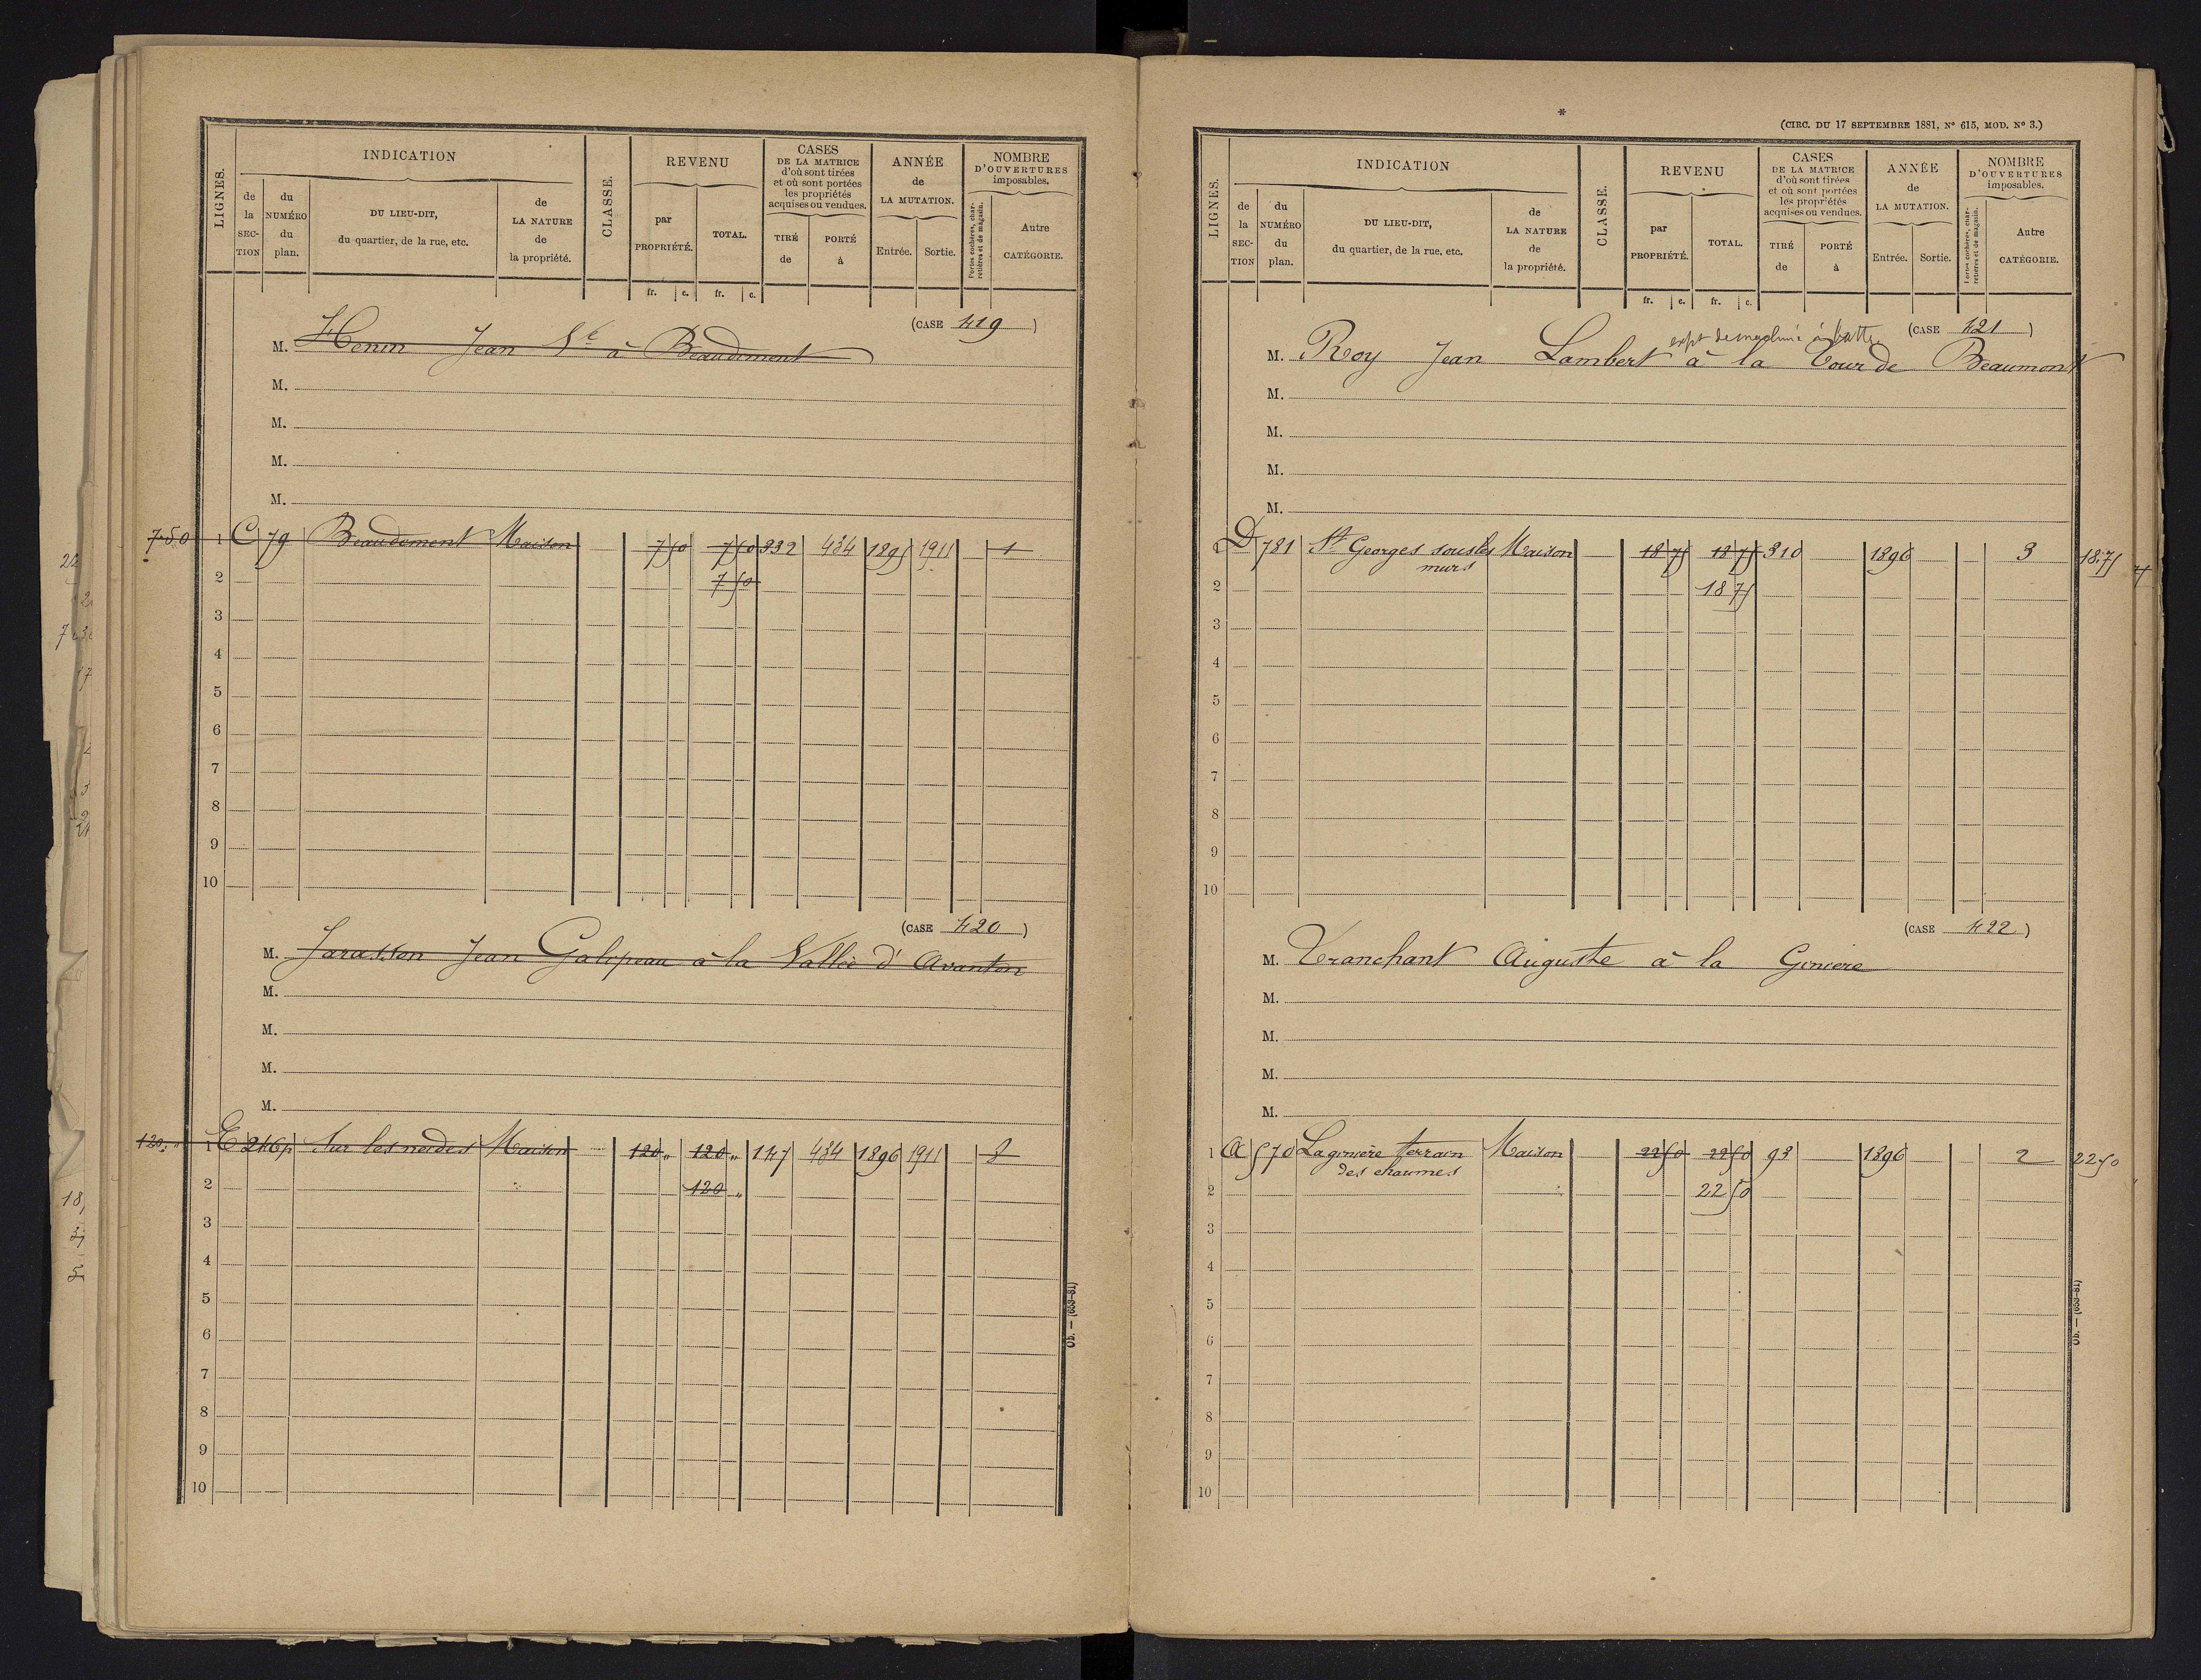 LIGNES.
INDICATION
de la SECTION
du NUMÉRO du plan.
DU LIEU-DIT, du quartier, de la rue, etc.
de LA NATURE de la propriété.
CLASSE.
REVENU
par PROPRIÉTÉ.
TOTAL.
CASES DE LA MATRICE d'où sont tirées et où sont portées les propriétés acquises ou vendues.
TIRÉ de
PORTÉ à
ANNÉE de LA MUTATION.
Entrée.
Sortie.
NOMBRE D'OUVERTURES imposables.
Portes cochères, charretières et de magasin.
Autre CATÉGORIE.
fr. c. fr. c.
(CASE 419)
M. Henin Jean Ve à Beaudiment
M.
M.
M.
M.
7.50 1 C 79 Beaudiment Maison 7 50 7 50 332 434 1895 1911 1
2 7 50
3
4
5
6
7
8
9
10
(CASE 420)
M. Jarasson Jean Galipeau à la Vallée d'Avanton
M.
M.
M.
M.
120. " 1 E 246p Sur les Maison 120 " 120 " 147 434 1896 1911 8
2 120 "
3
4
5
6
7
8
9
10
Ob. — (653-81)
*
(CIRC. DU 17 SEPTEMBRE 1881, No 615, MOD. No 3.)
LIGNES.
INDICATION
de la SECTION
du NUMÉRO du plan.
DU LIEU-DIT, du quartier, de la rue, etc.
de LA NATURE de la propriété.
CLASSE.
REVENU
par PROPRIÉTÉ.
TOTAL.
CASES DE LA MATRICE d'où sont tirées et où sont portées les propriétés acquises ou vendues.
TIRÉ de
PORTÉ à
ANNÉE de LA MUTATION.
Entrée.
Sortie.
NOMBRE D'OUVERTURES imposables.
Portes cochères, charretières et de magasin.
Autre CATÉGORIE.
fr. c. fr. c.
(CASE 421)
à battre
M. Roy Jean Lambert à la Tour de Beaumont
M.
M.
M.
M.
1 D 781 St Georges sous les Maison 18 75 18 75 310 1896 3 18.75
murs
2 18 75
3
4
5
6
7
8
9
10
(CASE 422)
M. Tranchant Auguste à la Ginière
M.
M.
M.
M.
1 A 570 La ginière terrain Maison 22 50 22 50 93 1896 2 22 50
des chaumes
2 22 50
3
4
5
6
7
8
9
10
Ob. — (653-81)